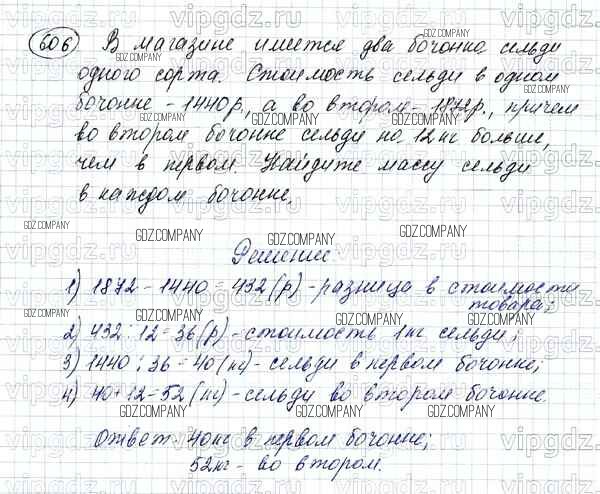 606 В магазине имеется два бочонка сельди
одного сорта. Стоимость сельди в одном
бочонке - 1440р., а во втором - 1872р., причем
во втором бочонке сельди на 12кг больше,
чем в первом. Найдите массу сельди
в каждом бочонке.
Решение:
1) 1872 - 1440 = 432 (р) - разница в стоимости
товара;
2) 432 : 12 = 36 (р) - стоимость 1кг сельди;
3) 1440 : 36 = 40 (кг) - сельди в первом бочонке;
4) 40 + 12 = 52 (кг) - сельди во втором бочонке.
Ответ: 40кг в первом бочонке;
52кг - во втором.